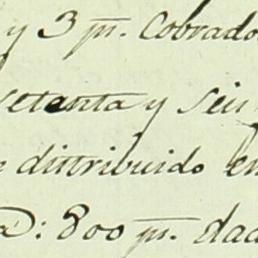 y 3 p.^s Cobrado
setenta y seis
distribuido en
D: 800 p.^s dad